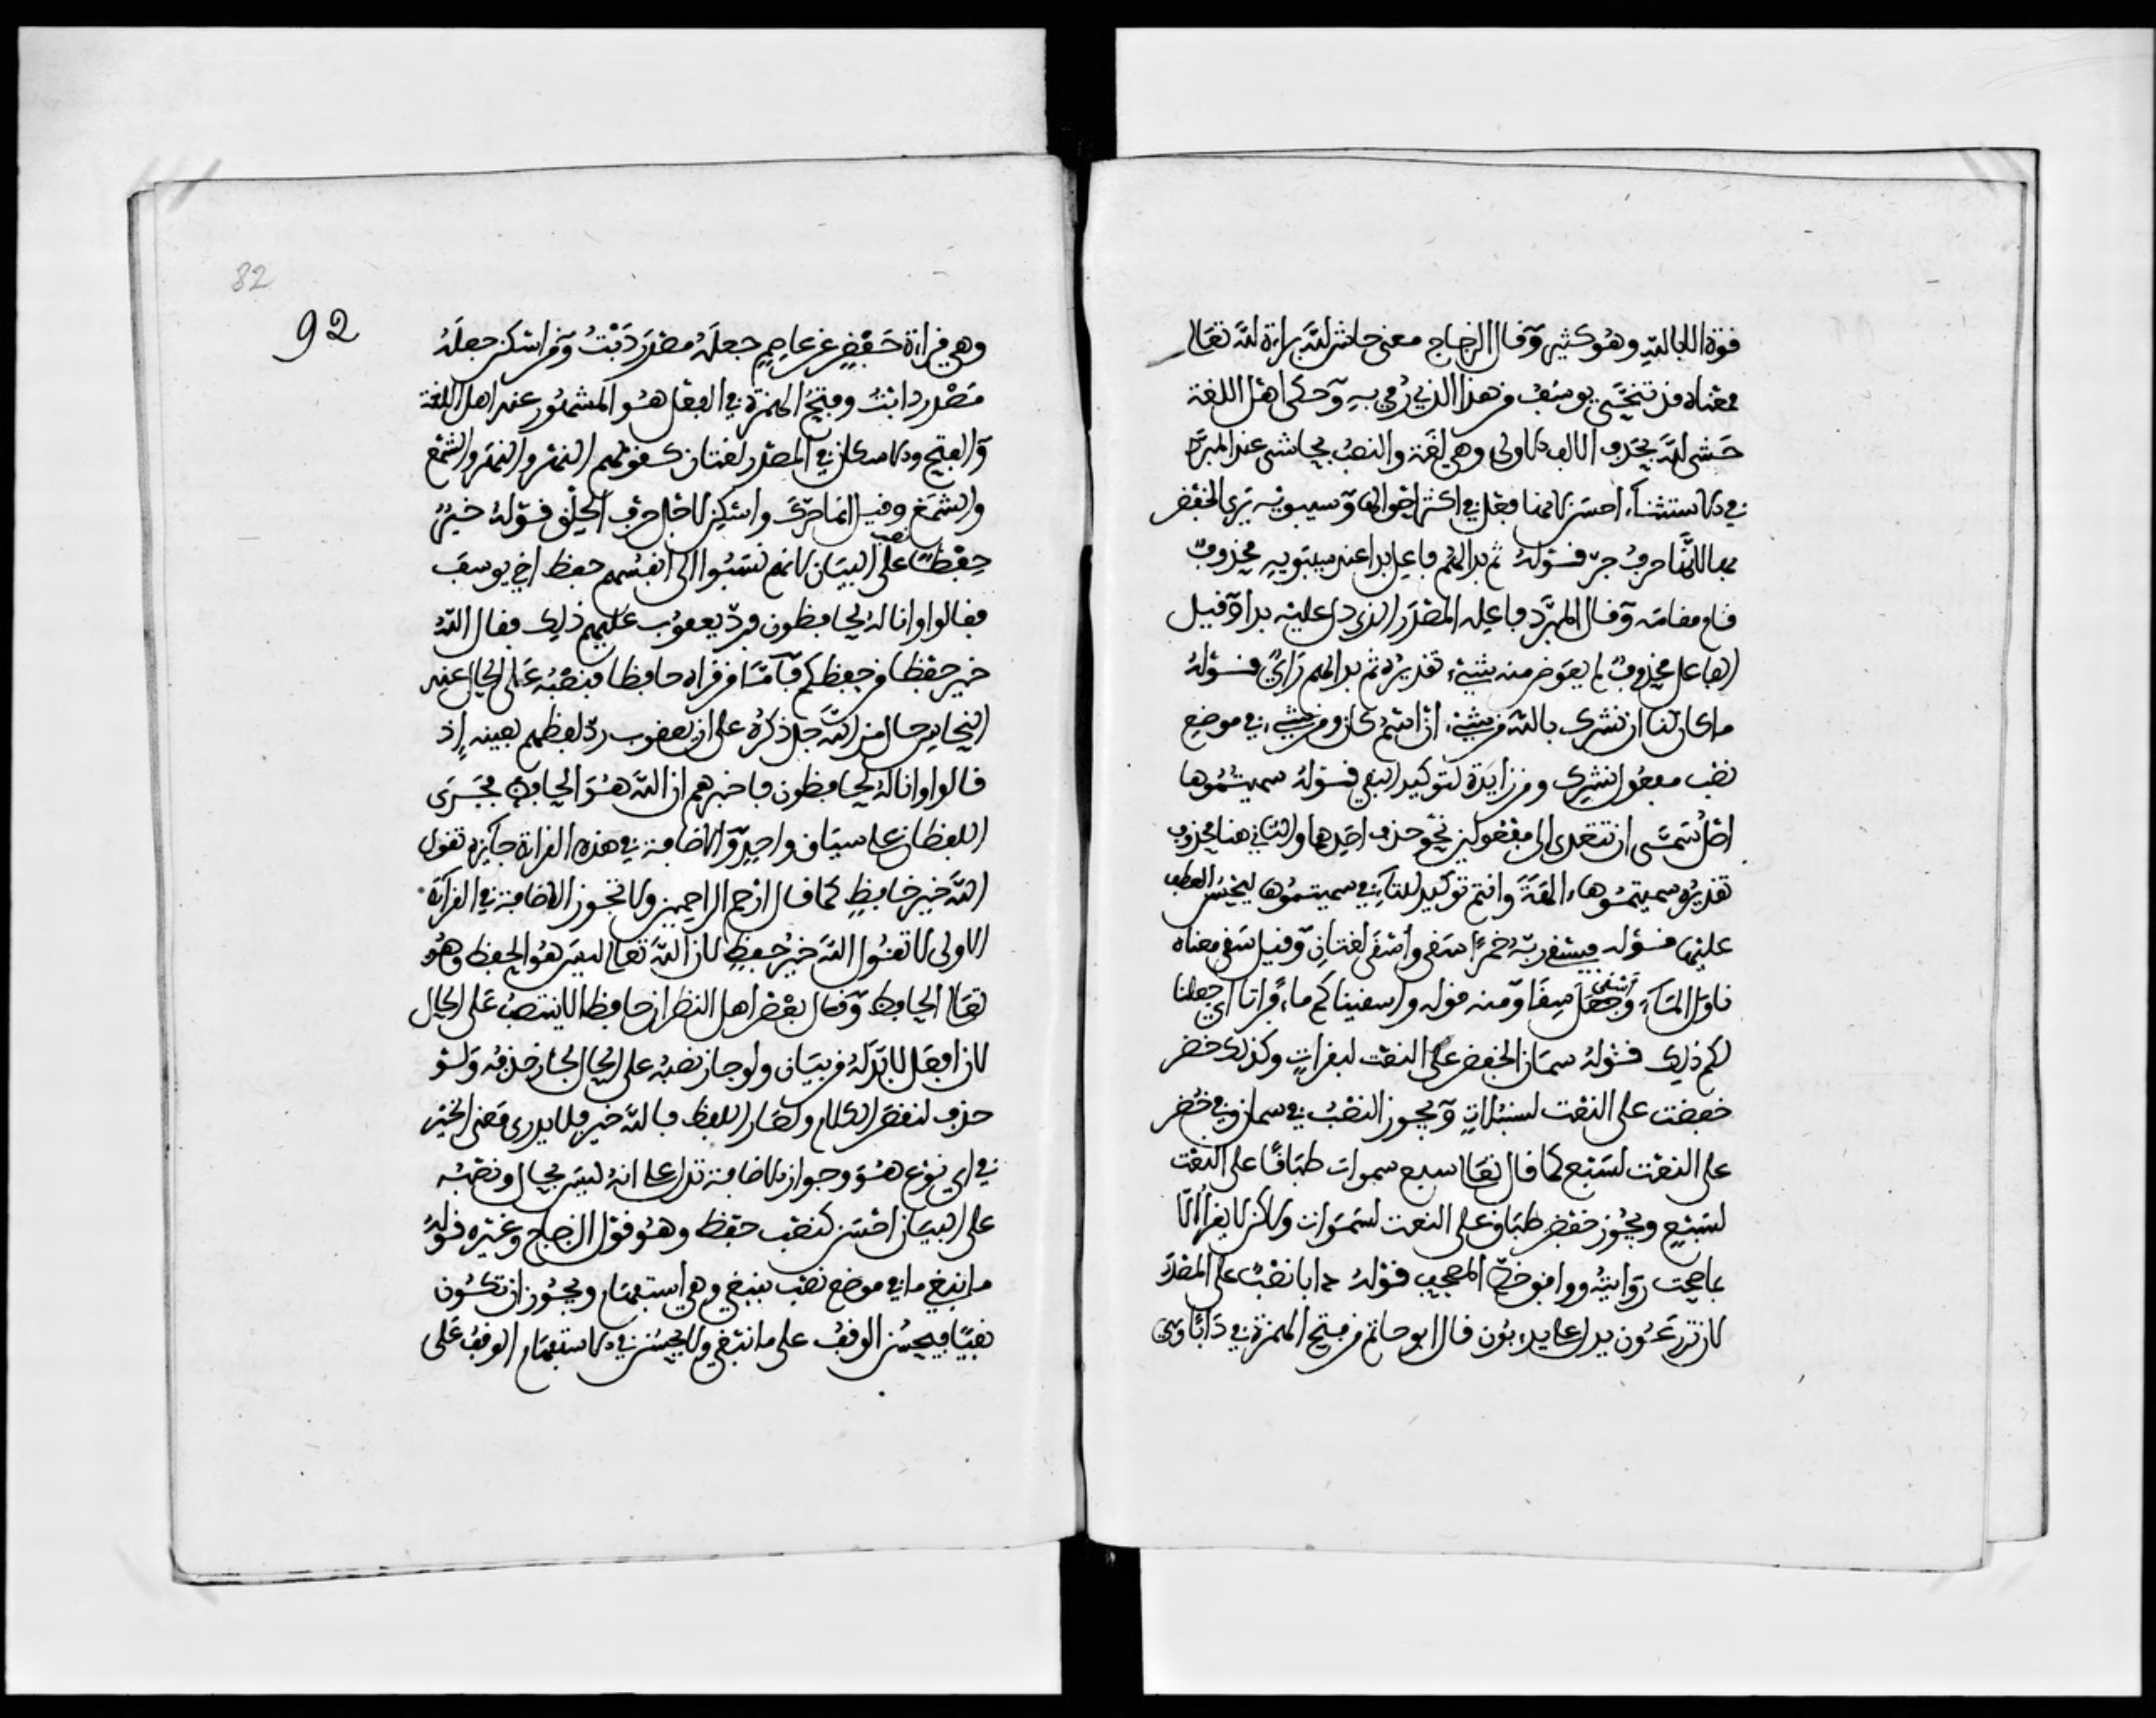 قوة اللام لله وهو كثير وقال الزجاج معنى حاش لله براءة لله تعالى
معناه قد تنحى يوسف من هذا الذي رمي به وحكى اهل اللغة
حشى لله بحذف الالف الاولى وهي لغة والنصب بحاشى عند المبرد
في الاستثناء احسن لانها فعل في اكثر احوالها وسيبويه يرى الخفض
بها لانها حرف جر قوله ثم بدا لهم فاعل بدا عند سيبويه محذوف
قام مقامه وقال المبرد فاعله المصدر الذي دل عليه بدا وقيل
الفاعل محذوف لم يعوض منه بشيء تقديره ثم بدا لهم راي قوله
ما كان لنا ان نشرك بالله من شيء ان اسم كان ومن شيء في موضع
نصب مفعول نشرك ومن زايدة لتوكيد النفي قوله سميتموها
اصل سمى ان تتعدى الى مفعولين يجوز حذف احدهما والثاني هنا محذوف
تقديره سميتموها ءالهة وانتم توكيد للتاء في سميتموها ليحسن العطف
عليها قوله فيسقي ربه خمرا سقى وأسقى لغتان وقيل سقى معناه
ناول الماء وأسقى جعل سقيا ومنه قوله واسقيناكم ماء فراتا اي جعلنا
لكم ذلك قوله سمان الخفض على النعت لبقرات وكذلك خضر
خفضت على النعت لسنبلات ويجوز النصب في سمان وفي خضر
على النعت لسبع كما قال تعالى سبع سموات طباقا على النعت
لسبع ويجوز خفض طباق على النعت لسموات ولاكن لا يقرأ الا
بما صحت روايته ووافق خط المصحف قوله دابا نصب على المصدر
لان تزرعون يدل على يدءبون قال ابو حاتم من فتح الهمزة في دأبا وهي
92
وهي قراءة حفص عن عاصم جعله مصدر دئبت ومن اسكن جعله
مصدر دابت وفتح الهمزة في الفعل هو المشهور عند اهل اللغة
والفتح والاسكان في المصدر لغتان كقولهم النهر والنهر والشمع
والشمع وقيل انما حرك واسكن لاجل حرف الحلق قوله خير
حفظا نصب على البيان لانهم نسبوا الى انفسهم حفظ اخي يوسف
فقالوا وانا له لحافظون فرد يعقوب عليهم ذلك فقال الله
خير حفظا من حفظكم فاما من قراه حافظا فنصبه على الحال عند
النحاس حال من الله جل ذكره على ان يعقوب رد لفظهم بعينه إذ
قالوا وانا له لحافظون فاخبرهم ان الله هو الحافظ فجرى
اللفظان على سياق واحد والاضافة في هذه القراءة جايزة تقول
الله خير حافظ كما قال ارحم الراحمين ولا تجوز الاضافة في القراءة
الاولى لا تقول الله خير حفظ لان الله تعالى ليس هو الحفظ وهو
تعالى الحافظ وقال بعض اهل النظر ان حافظا لا ينتصب على الحال
لان افعل لا بد له من بيان ولو جاز نصبه على الحال لجاز حذفه ولو
حذف لنقض الكلام ولصار اللفظ فالله خير فلا يدرى معنى الخير
في اي نوع هو وجواز الاضافة تدل على انه ليس بحال ونصبه
على البيان احسن كنصب حفظ وهو قول الزجاج وغيره قوله
ما نبغي ما في موضع نصب بنبغي وهي استفهام ويجوز ان تكون
نفيا فيحسن الوقف على ما نبغي ولا يحسن في الاستفهام الوقف على